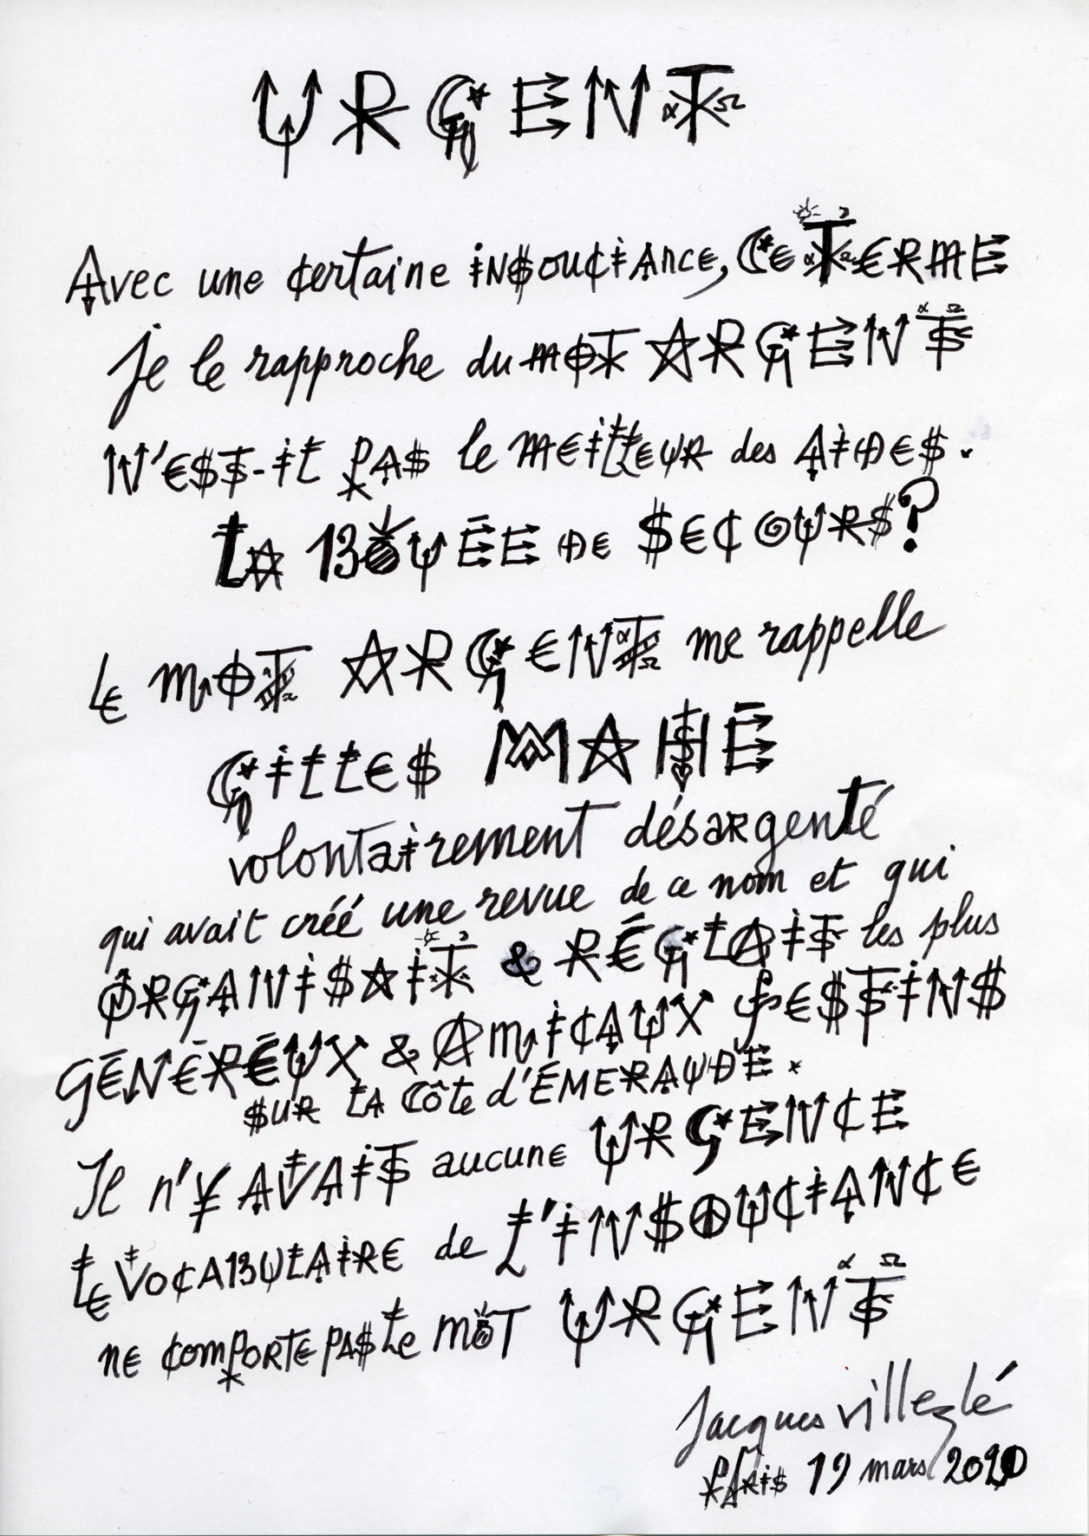 URGENT
Avec une certaine insouciance, CE TERME
je le rapproche du mot ARGENT
N'EST-IL PAS le MEILLEUR des AIDES.
LA BOUÉE DE SECOURS?
LE MOT ARGENT me rappelle
GILLES MAHÉ
volontairement désargenté
qui avait créé une revue de ce nom et qui
ORGANISAIT & RÉGLAIT les plus
GÉNÉREUX & AMICAUX FESTINS
SUR LA CÔTE d'ÉMERAUDE.
Il n'Y AVAIT aucune URGENCE
LE VOCABULAIRE de L'INSOUCIANCE
NE COMPORTE PAS LE MOT URGENT
Jacques Villeglé
Paris 19 mars 2020